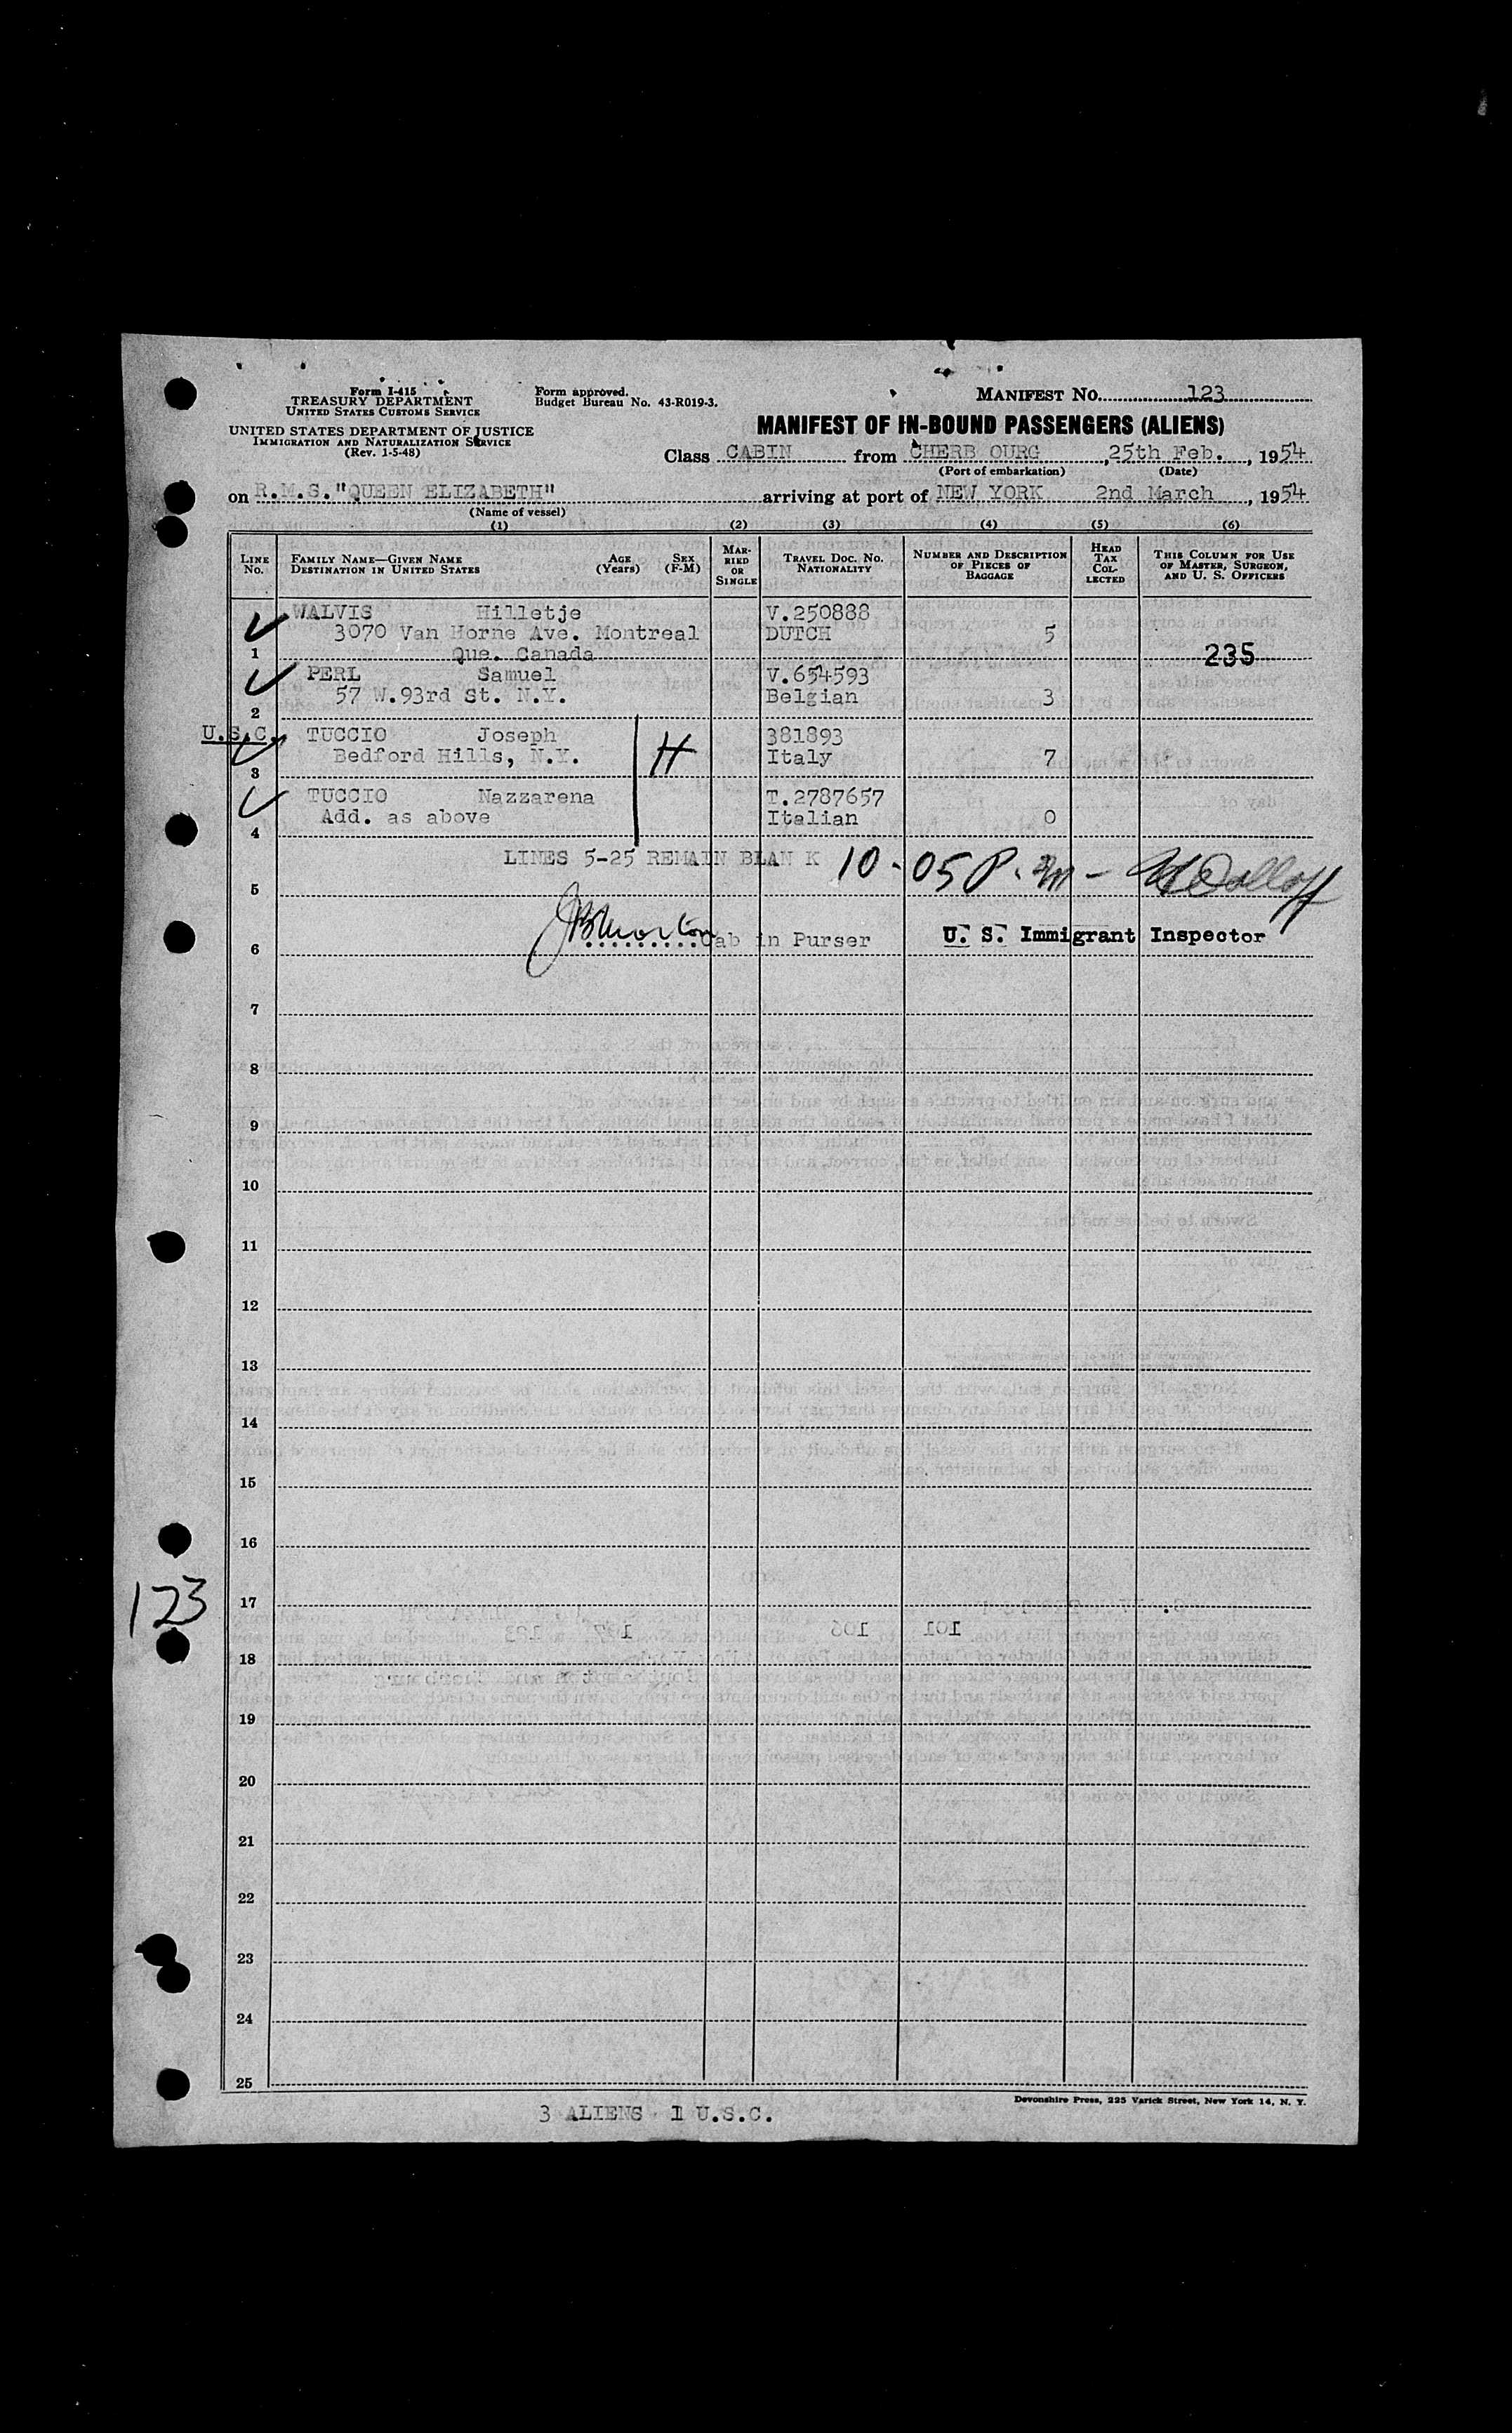 Form I-415
TREASURY DEPARTMENT
UNITED STATES CUSTOMS SERVICE
UNITED STATES DEPARTMENT OF JUSTICE
IMMIGRATION AND NATURALIZATION SERVICE
(Rev. 1-5-48)
Form approved.
Budget Bureau No. 43-R019-3.
MANIFEST NO. 123
MANIFEST OF IN-BOUND PASSENGERS (ALIENS)
Class CABIN from CHERB OURG, 25th Feb., 1954
(Port of embarkation) (Date)
on R.M.S."QUEEN ELIZABETH" arriving at port of NEW YORK 2nd March, 1954
(Name of vessel)
(1) (2) (3) (4) (5) (6)
LINE NO. FAMILY NAME—GIVEN NAME DESTINATION IN UNITED STATES AGE (Years) SEX (F-M) MARRIED OR SINGLE TRAVEL DOC. NO. NATIONALITY NUMBER AND DESCRIPTION OF PIECES OF BAGGAGE HEAD TAX COLLECTED THIS COLUMN FOR USE OF MASTER, SURGEON, AND U. S. OFFICERS
WALVIS Hilletje V.250888
3070 Van Horne Ave. Montreal DUTCH 5
1 Que. Canada 235
PERL Samuel V.654593
57 W.93rd St. N.Y. Belgian 3
2
U.S.C. TUCCIO Joseph 381893
Bedford Hills, N.Y. H Italy 7
3
TUCCIO Nazzarena T.2787657
Add. as above Italian 0
4
LINES 5-25 REMAIN BLAN K 10-05 P.m -
5
Cab in Purser U. S. Immigrant Inspector
6
7
8
9
10
11
12
13
14
15
16
123
17
18
19
20
21
22
23
24
25
Devonshire Press, 225 Varick Street, New York 14, N. Y.
3 ALIENS 1 U.S.C.